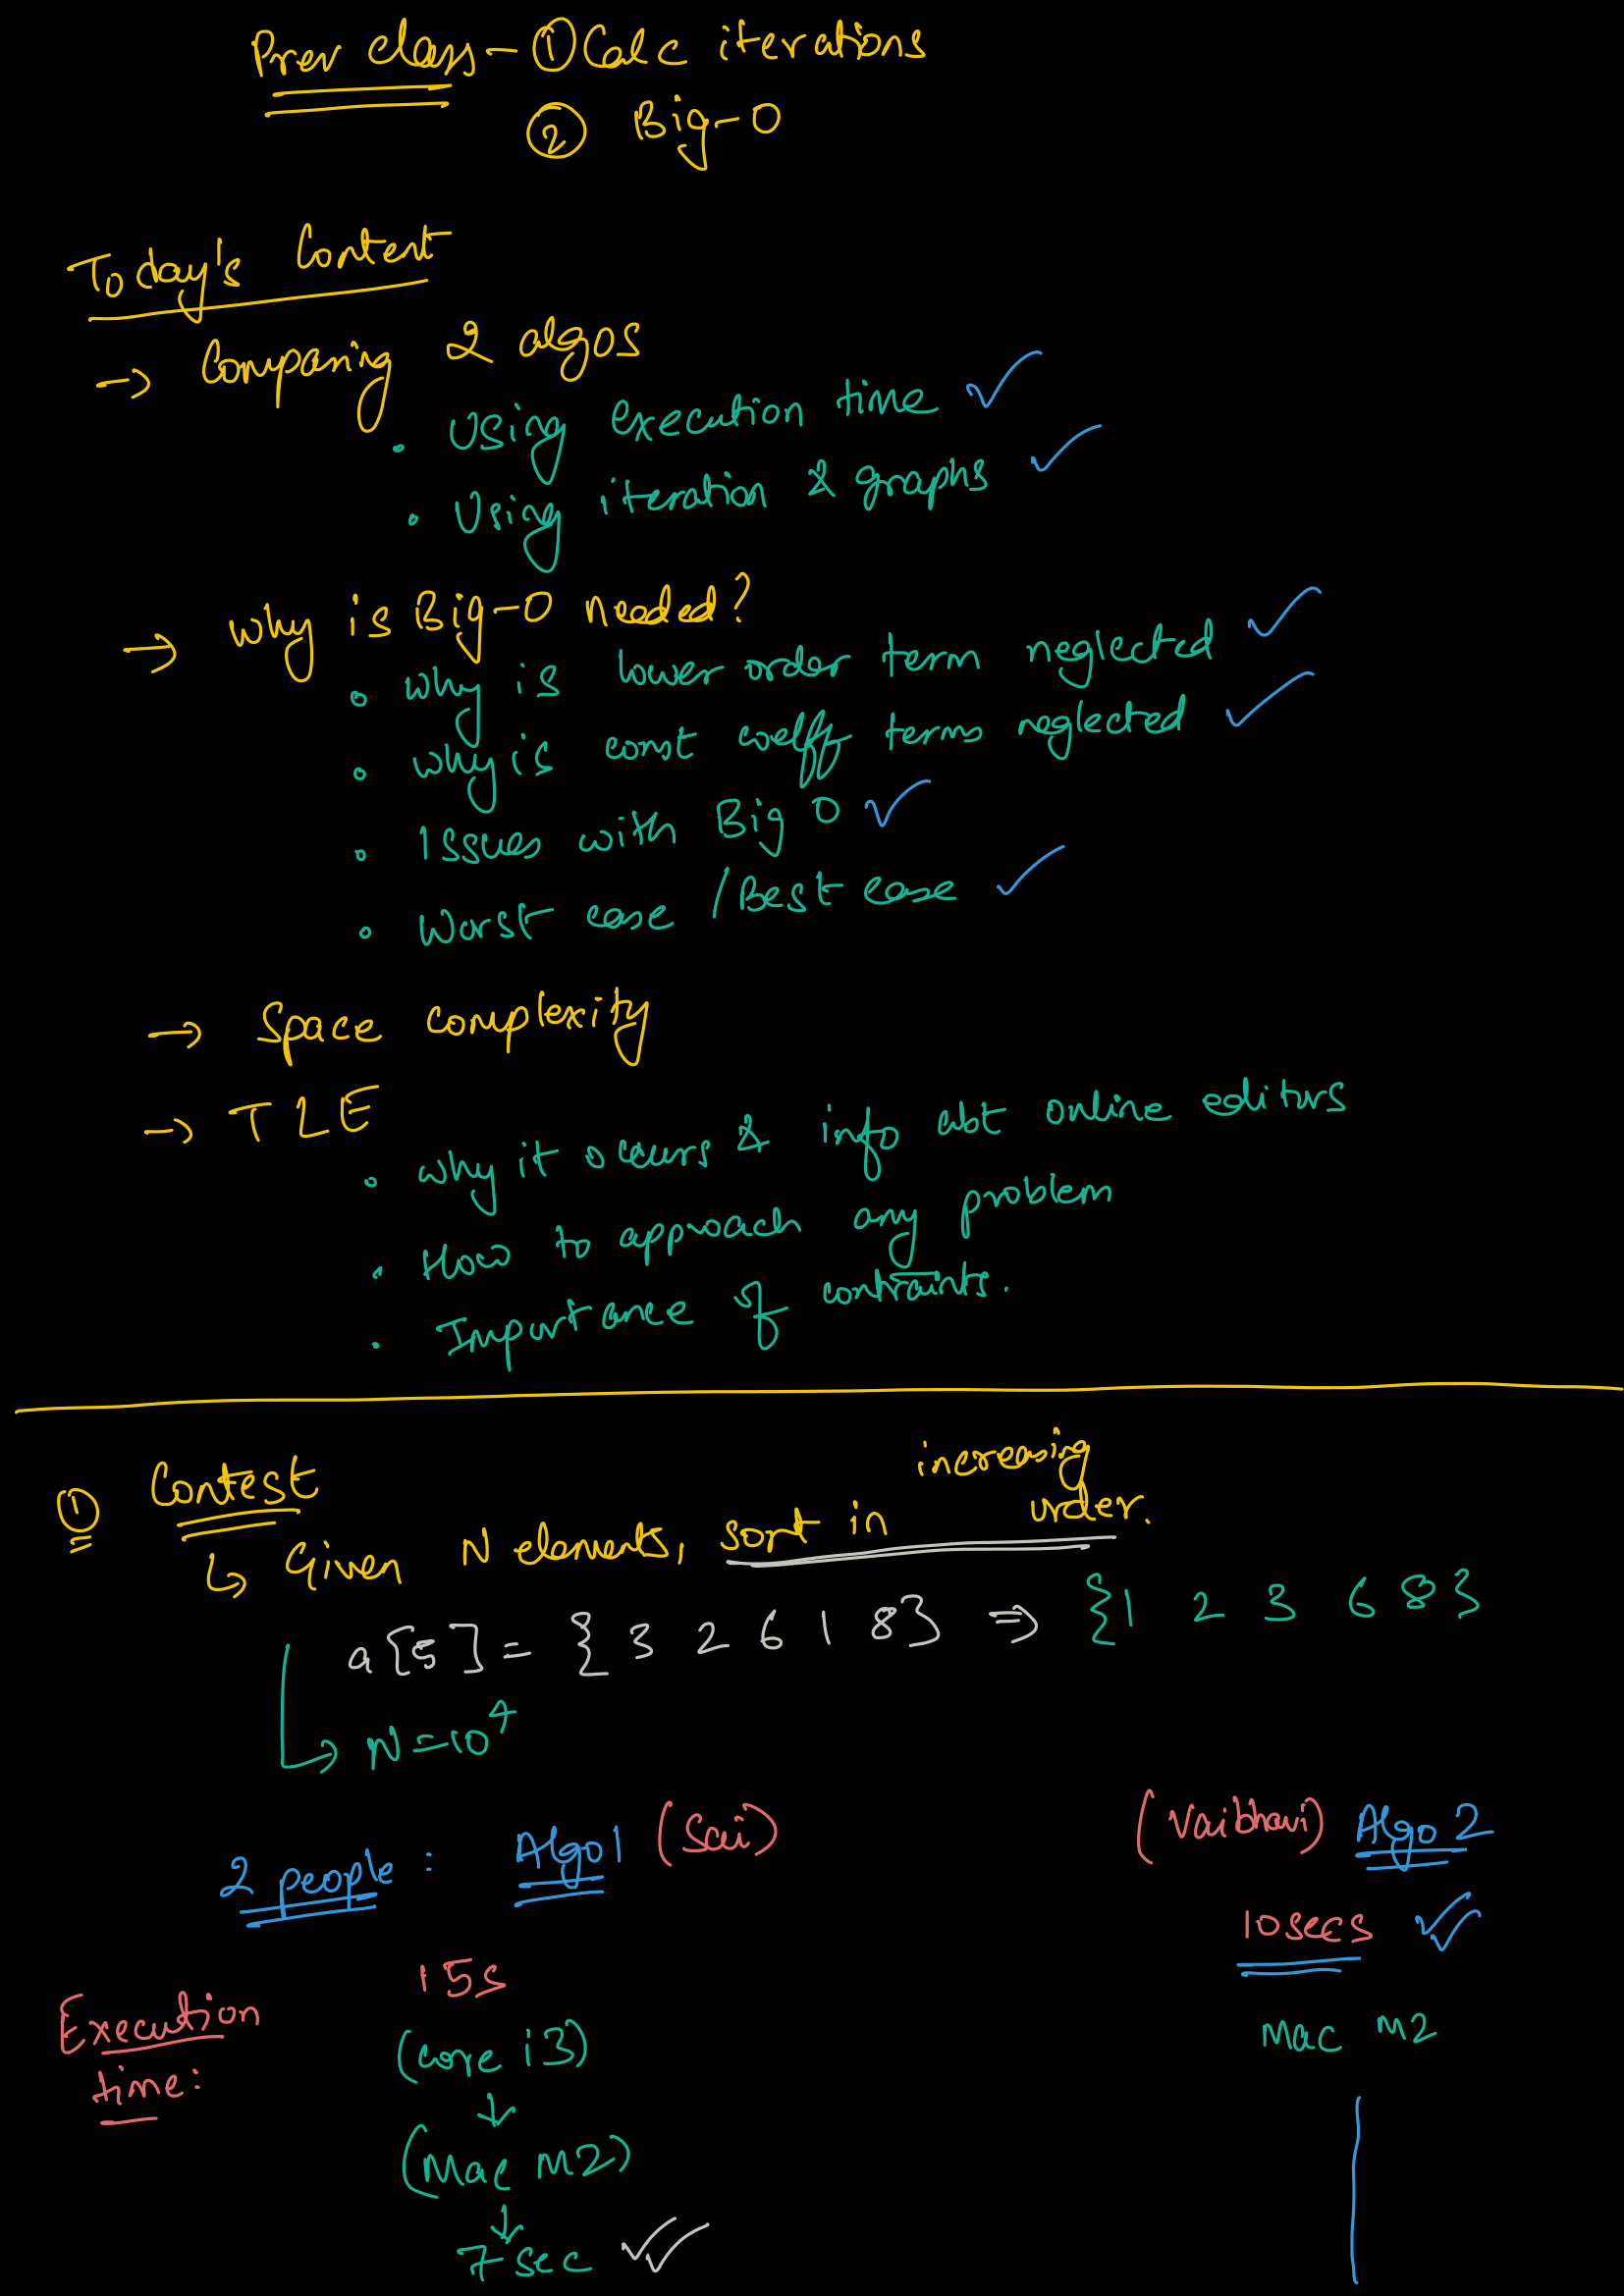 Prev class - ① Calc iterations
② Big-O
Today's Content
→ Comparing 2 algos
• Using execution time ✓
• Using iteration & graphs ✓
→ Why is Big-O needed?
• Why is lower order term neglected ✓
• Why is const coeff terms neglected ✓
• Issues with Big O ✓
• Worst case / Best case ✓
→ Space complexity
→ TLE
• Why it occurs & info abt online editors
• How to approach any problem
• Importance of contraints.
① Contest
↳ Given N elements, sort in increasing order.
a[5] = { 3 2 6 1 8 } ⇒ { 1 2 3 6 8 }
↳ N = 10⁴
2 people : Algo1 (Sai) (Vaibhavi) Algo 2
Execution time: 15s 10secs ✓✓
(core i3) Mac M2
↓
(Mac M2)
↓
7 sec ✓✓